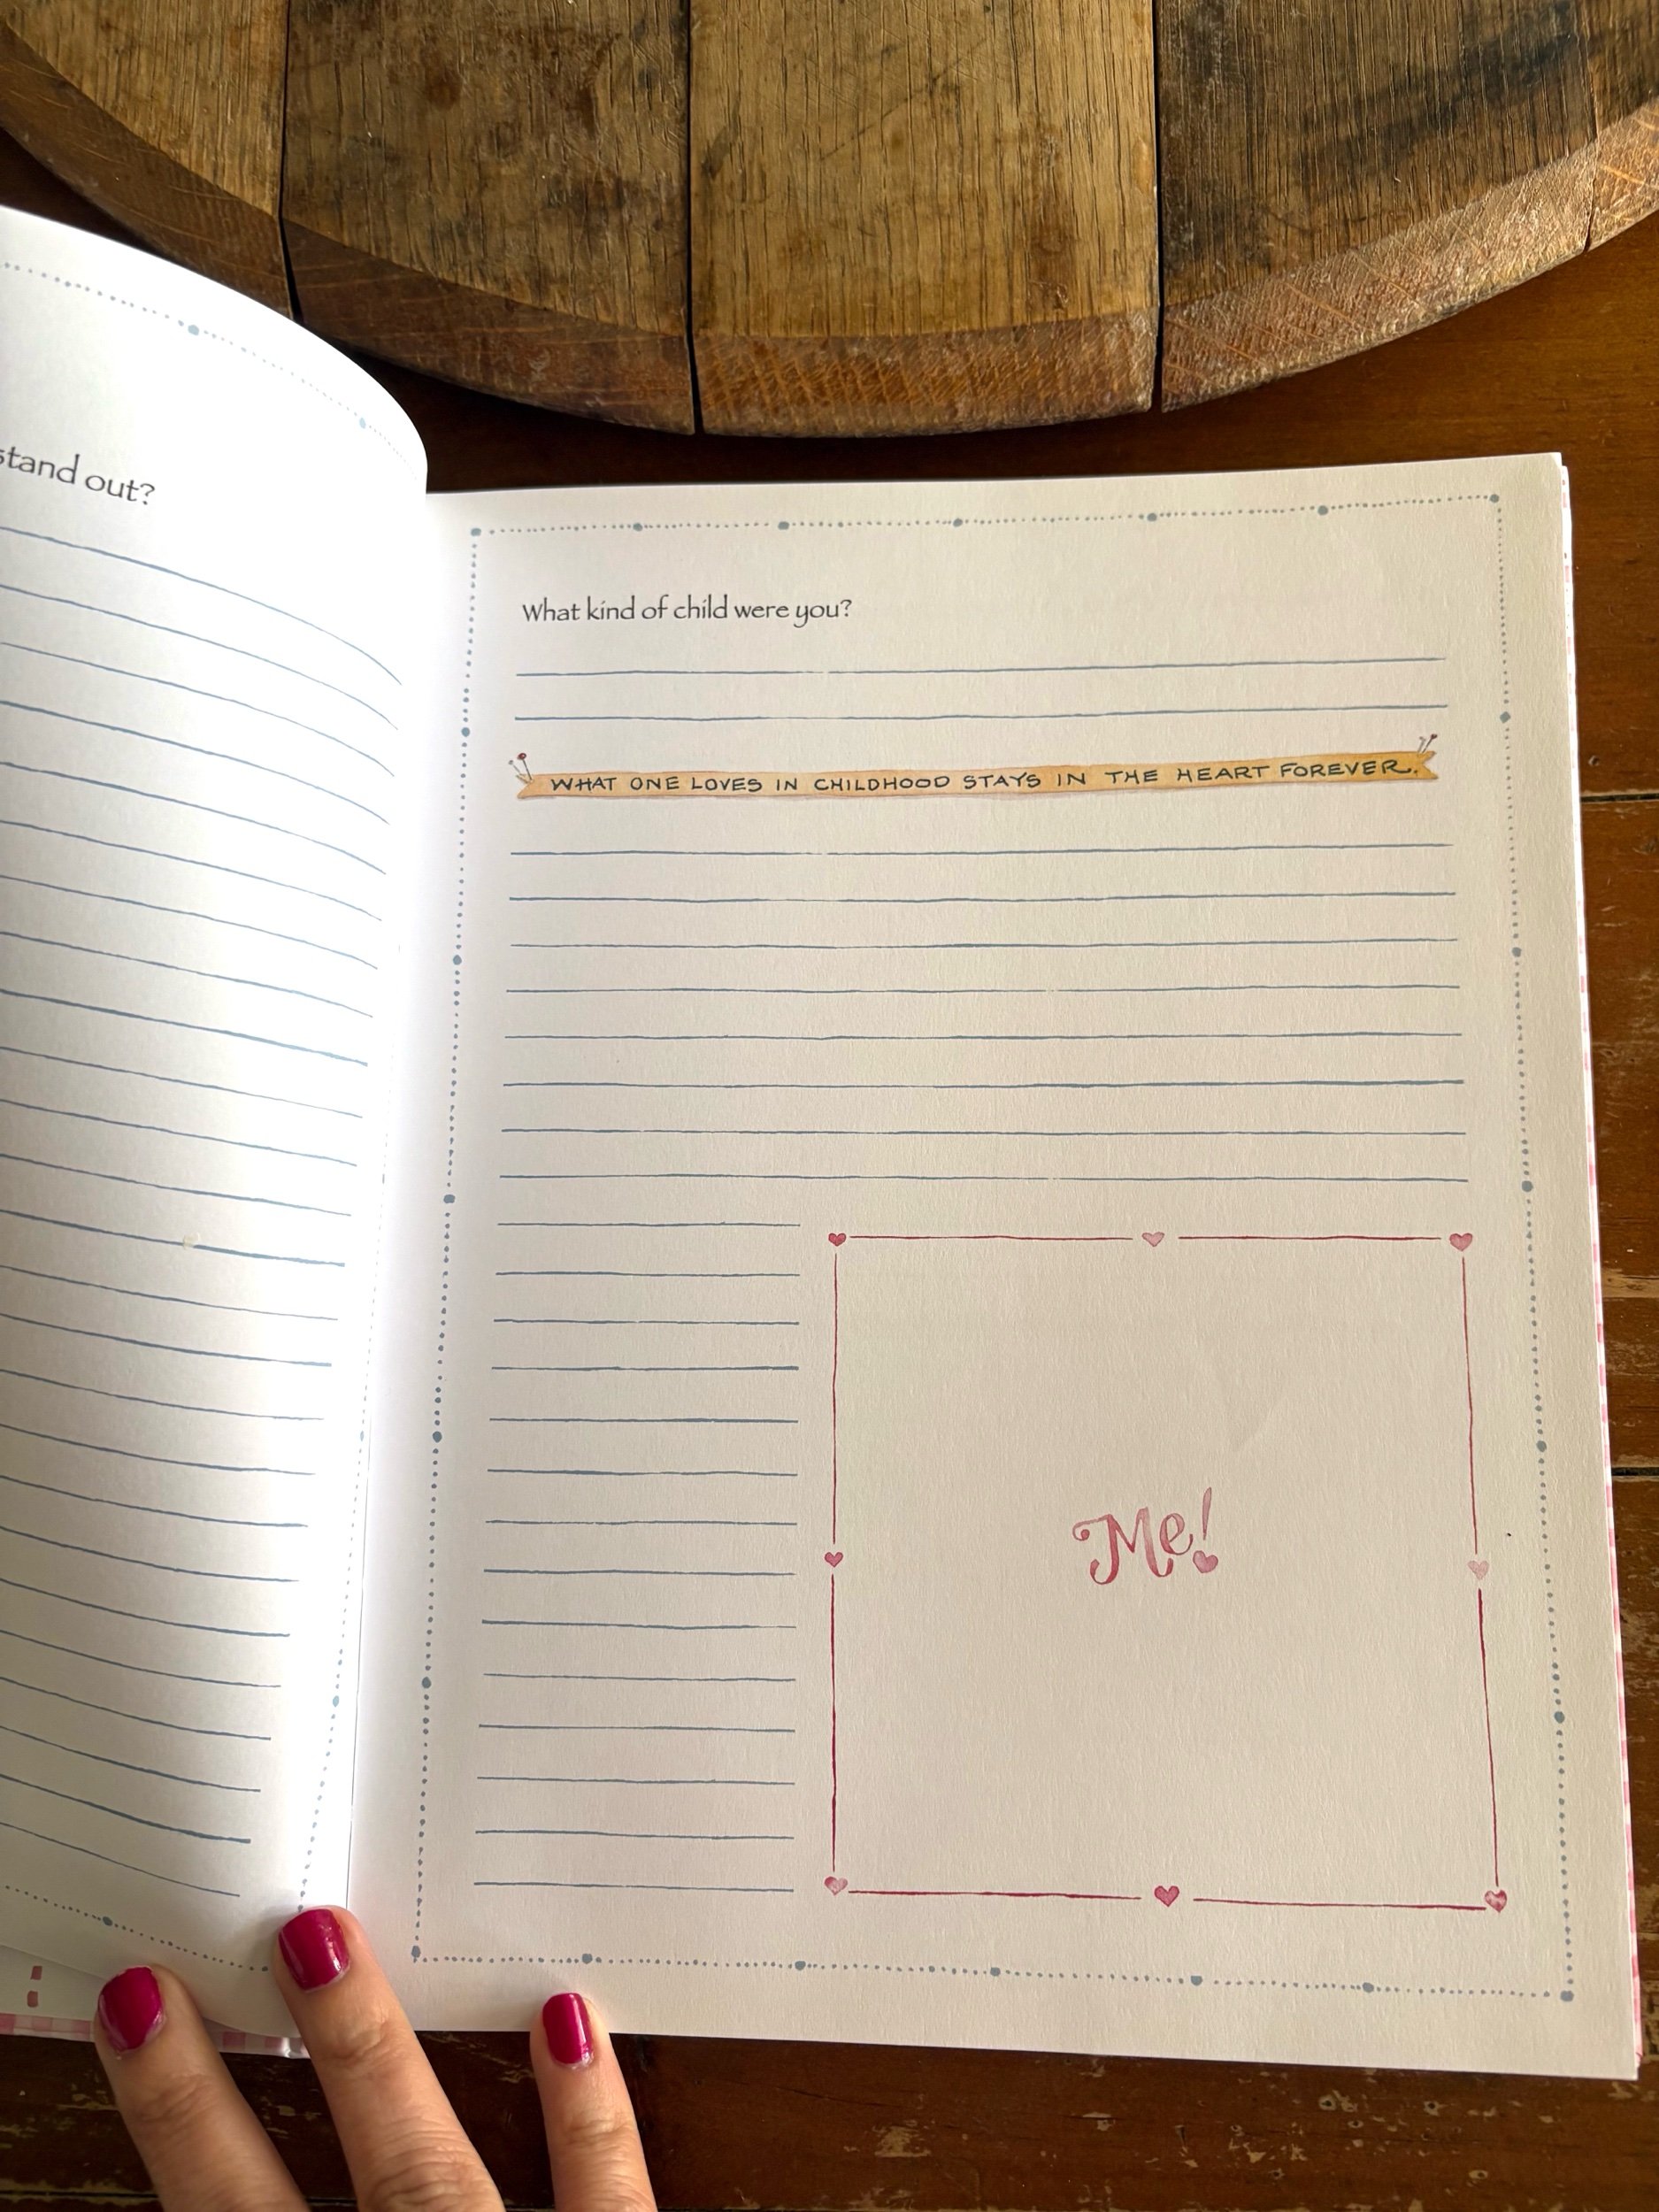 stand out?
What kind of child were you?
WHAT ONE LOVES IN CHILDHOOD STAYS IN THE HEART FOREVER.
Me!